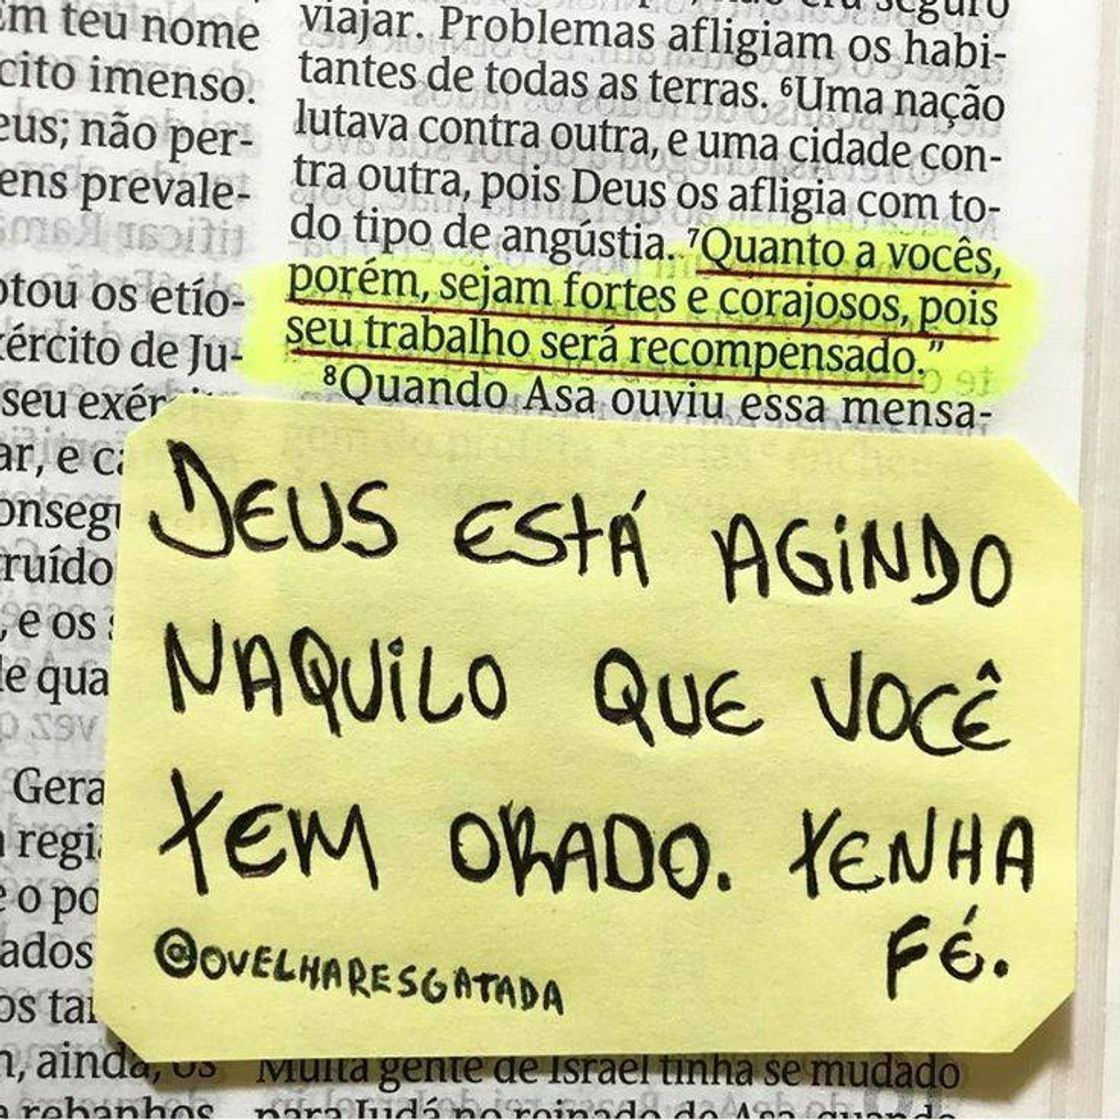 em teu nome
cito imenso.
eus; não per-
ens prevale-
otou os etío-
ército de Ju-
seu exér
ar, e
onseg
ruído
, e os
de qua
Gera
regi
e o po
ados
os
, ainda, os
rebanhos
seguro
viajar. Problemas afligiam os habi-
tantes de todas as terras. ⁶Uma nação
lutava contra outra, e uma cidade con-
tra outra, pois Deus os afligia com to-
do tipo de angústia. ⁷Quanto a vocês,
porém, sejam fortes e corajosos, pois
seu trabalho será recompensado.”
⁸Quando Asa ouviu essa mensa-
DEUS ESTÁ AGINDO
NAQUILO QUE VOCÊ
TEM ORADO. TENHA
FÉ.
@OVELHARESGATADA
Muita gente de Israel tinha se mudado
para Judá no reinado de Asa, quando